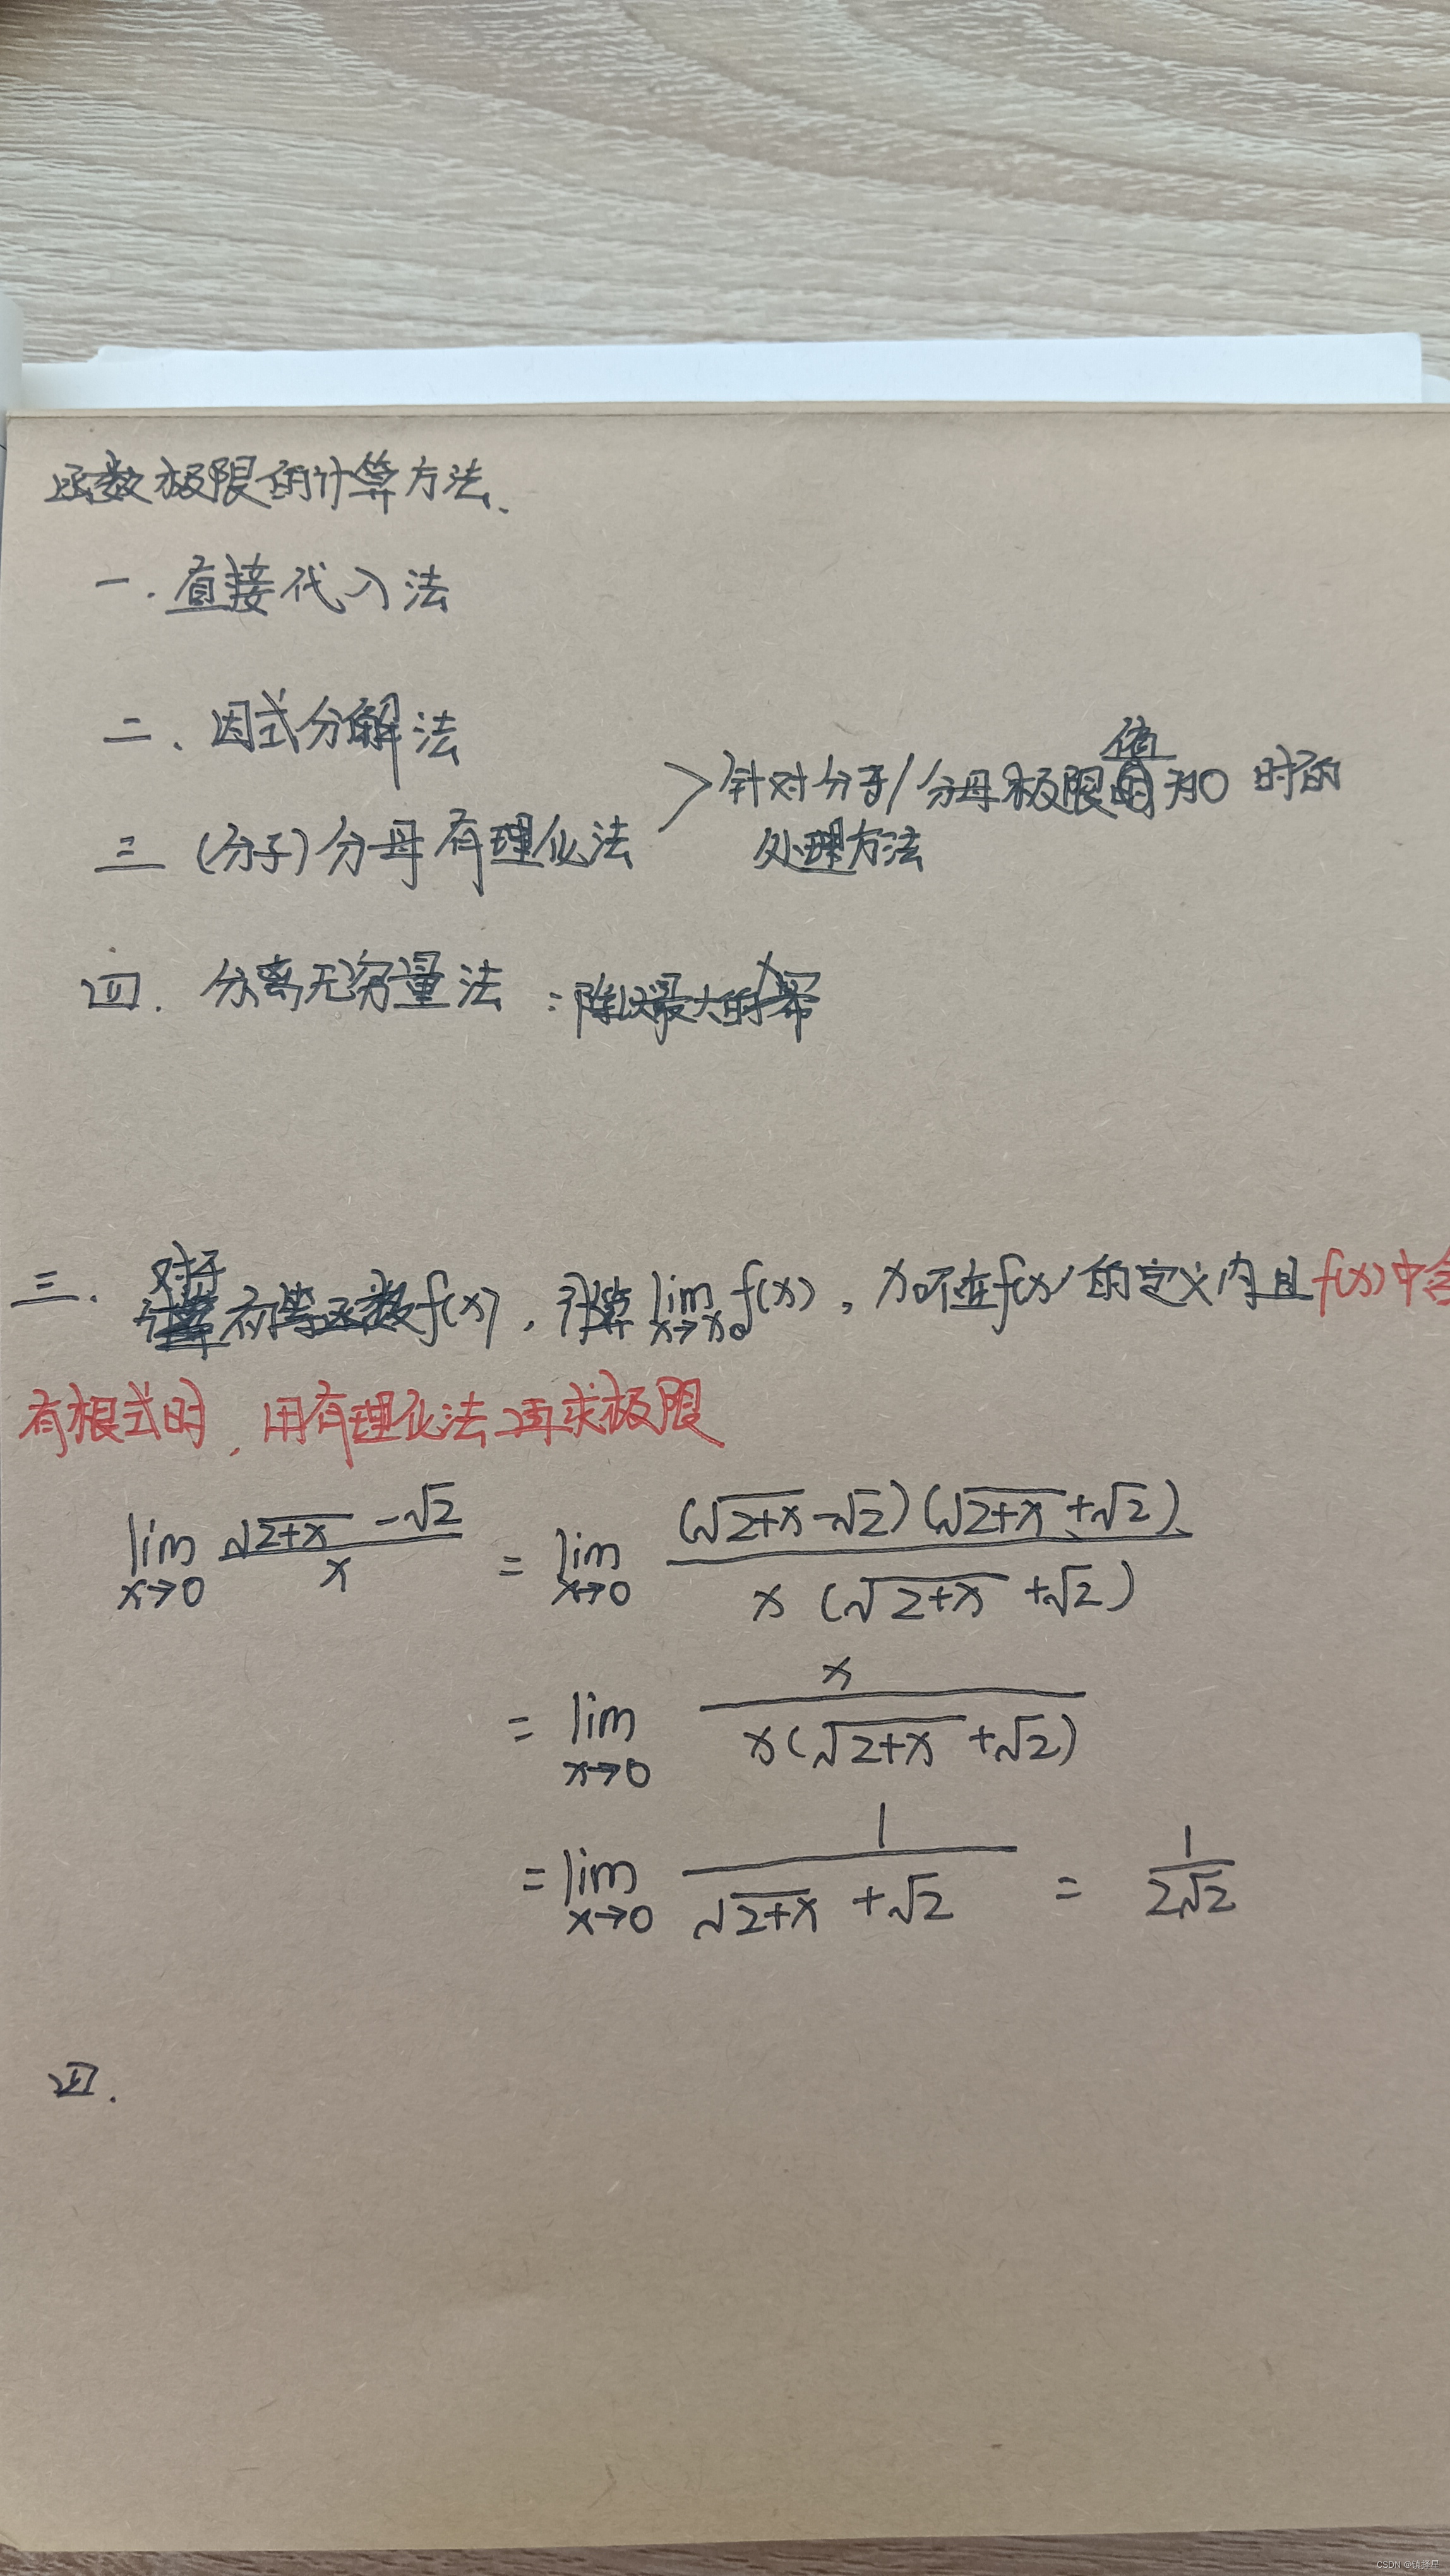 函数极限的计算方法.
一. 直接代入法
二、因式分解法
三 (分子)分母有理化法
>针对分子/分母极限值为0时的
处理方法
四. 分离无穷量法 : 除以最大的x幂
三. 对于初等函数f(x), 计算 lim x→x₀ f(x), x₀不在f(x)的定义内且f(x)中含
有根式时, 用有理化法再求极限
lim x→0 (√(2+x) - √2)/x = lim x→0 ((√(2+x) - √2)(√(2+x) + √2))/(x(√(2+x) + √2))
= lim x→0 x/(x(√(2+x) + √2))
= lim x→0 1/(√(2+x) + √2) = 1/(2√2)
四.